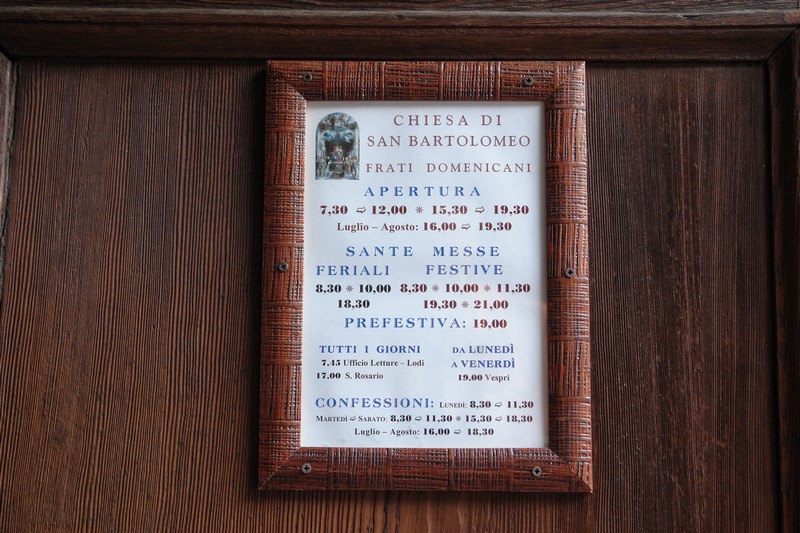 CHIESA DI
SAN BARTOLOMEO
FRATI DOMENICANI
APERTURA
7,30 ➪ 12,00 ✵ 15,30 ➪ 19,30
Luglio – Agosto: 16,00 ➪ 19,30
SANTE MESSE
FERIALI FESTIVE
8,30 ✵ 10,00 8,30 ✵ 10,00 ✵ 11,30
18,30 19,30 ✵ 21,00
PREFESTIVA: 19,00
TUTTI I GIORNI
7,45 Ufficio Letture – Lodi
17,00 S. Rosario
DA LUNEDÌ
A VENERDÌ
19,00 Vespri
CONFESSIONI: LUNEDÌ: 8,30 ➪ 11,30
MARTEDÌ ➪ SABATO: 8,30 ➪ 11,30 ✵ 15,30 ➪ 18,30
Luglio – Agosto: 16,00 ➪ 18,30